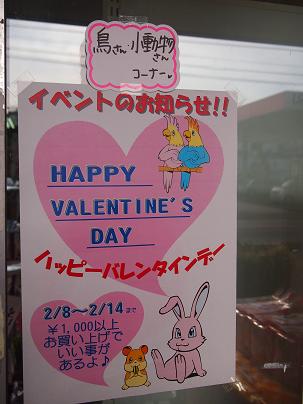 鳥さん・小動物さん
コーナー♥
イベントのお知らせ!!
HAPPY
VALENTINE'S
DAY
ハッピーバレンタインデー
2/8～2/14まで
￥1,000以上
お買い上げで
いい事が
あるよ♪